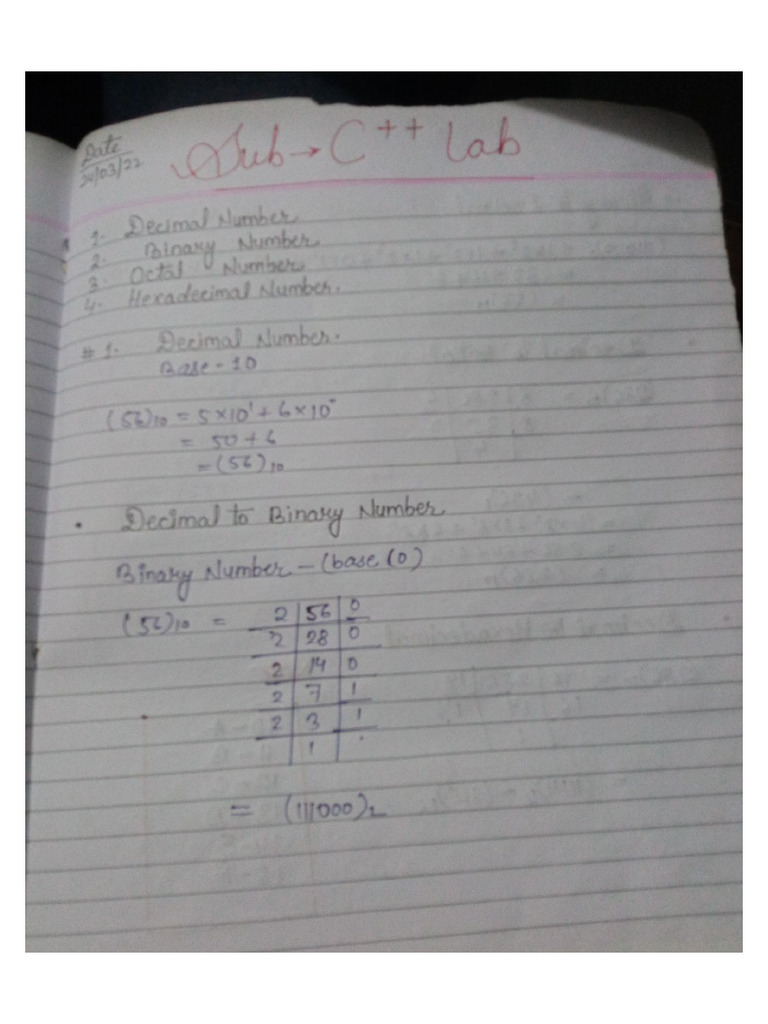 Date
24/03/22
Sub → C++ Lab
1. Decimal Number
2. Binary Number
3. Octal Number
4. Hexadecimal Number.
# 1. Decimal Number.
Base - 10
(56)₁₀ = 5×10¹ + 6×10⁰
= 50 + 6
= (56)₁₀
• Decimal to Binary Number
Binary Number – (base (0)
(56)₁₀ = 2 | 56 | 0
2 | 28 | 0
2 | 14 | 0
2 | 7 | 1
2 | 3 | 1
| 1 |
= (111000)₂